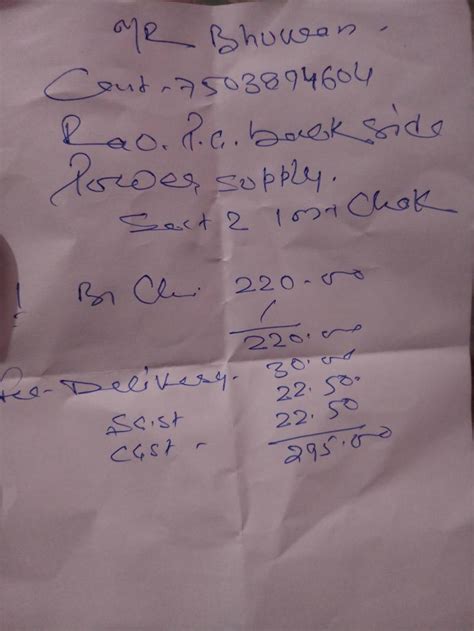 MR Bhuwan.
Cont - 7503894604
Rao. P.G. back side
Power supply.
Sect 2 Chok
! Br Chi. 220.00
/
220.00
Delivery. 30.00
22.50.
SGST 22.50
CGST - 295.00